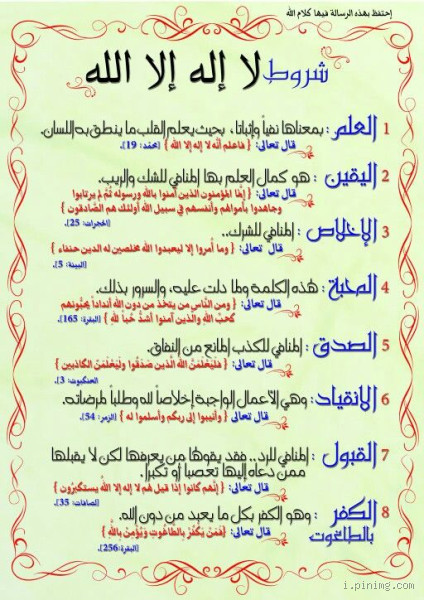 إحتفظ بهذه الرسالة فيها كلام الله
شروط لا إله إلا الله
1 العلم : بمعناها نفياً وإثباتا، بحيث يعلم القلب ما ينطق به اللسان.
قال تعالى: { فاعلم أنه لا إله إلا الله } [محمد: 19].
2 اليقين : هو كمال العلم بها المنافي للشك والريب.
قال تعالى: { إنما المؤمنون الذين آمنوا بالله ورسوله ثم لم يرتابوا
وجاهدوا بأموالهم وأنفسهم في سبيل الله أولئك هم الصادقون }
[الحجرات: 25].
3 الإخلاص : المنافي للشرك..
قال تعالى: { وما أمروا إلا ليعبدوا الله مخلصين له الدين حنفاء }
[البينة: 5].
4 المحبة : هذه الكلمة ولما دلت عليه، والسرور بذلك.
قال تعالى: { ومن الناس من يتخذ من دون الله أنداداً يحبونهم
كحب الله والذين آمنوا أشد حباً لله } [البقرة: 165].
5 الصدق : المنافي للكذب المانع من النفاق.
قال تعالى: { فليعلمن الله الذين صدقوا وليعلمن الكاذبين }
[العنكبوت: 3].
6 الانقياد : وهي الأعمال الواجبة إخلاصاً لله وطلباً لمرضاته.
قال تعالى: { وأنيبوا إلى ربكم وأسلموا له } [الزمر: 54].
7 القبول : المنافي للرد.. فقد يقولها من يعرفها لكن لا يقبلها
ممن دعاه إليها تعصباً أو تكبراً.
قال تعالى: { إنهم كانوا إذا قيل لهم لا إله إلا الله يستكبرون }
[الصافات: 35].
8 الكفر بالطاغوت : وهو الكفر بكل ما يعبد من دون الله.
قال تعالى: {فمن يكفر بالطاغوت ويؤمن بالله}
[البقرة:256].
i.pinimg.com